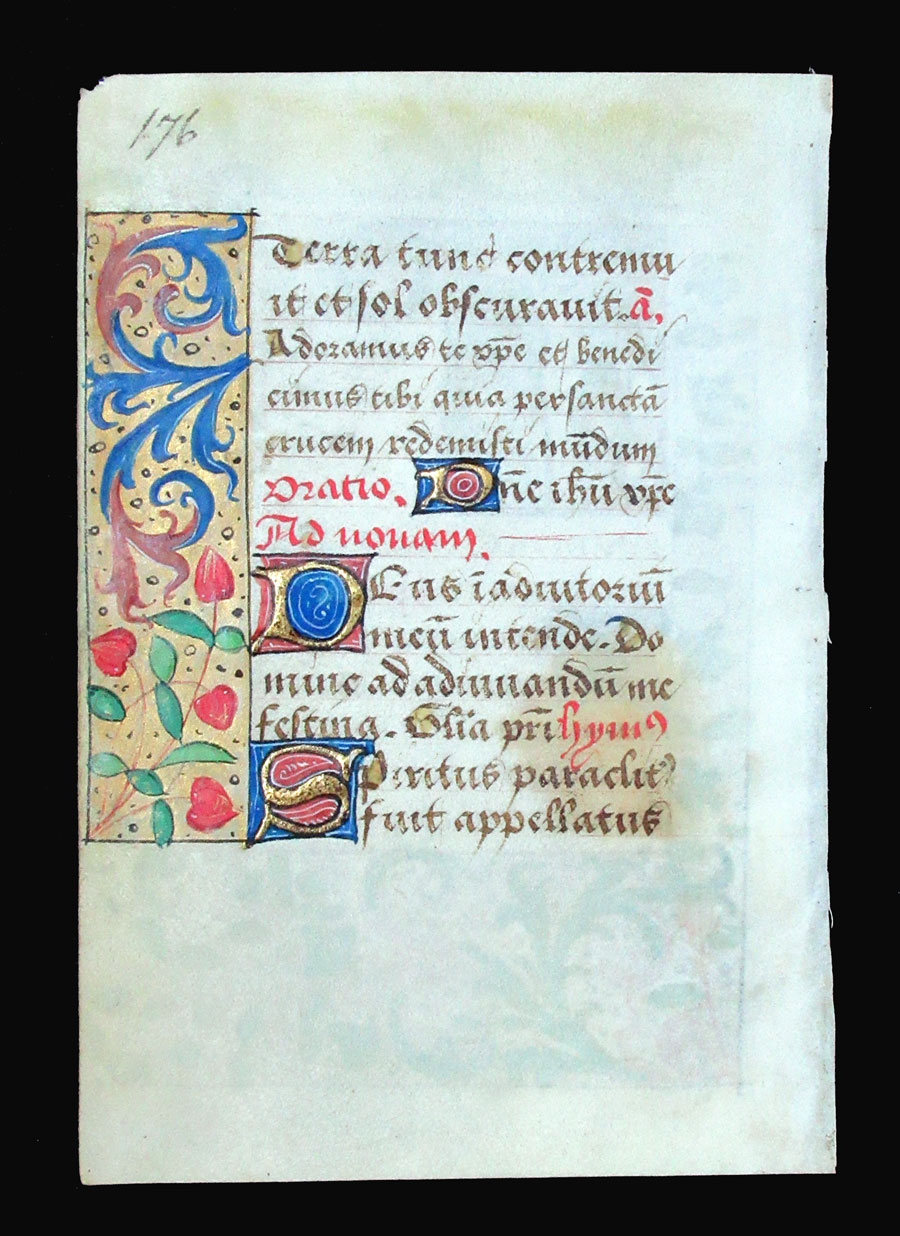 176
Terra tunc contremu
it et sol obscuravit. a̅.
Adoramus te xp̅e et benedi
cimus tibi quia per sancta̅
crucem redemisti mu̅dum
Oratio. Dn̅e ihu̅ xp̅e
Ad nonam.
DEus i̅ adiutoriu̅
meu̅ intende. Do
mine ad adiuuandu̅ me
festina. Gl̅ia pr̅i hymꝰ
Spiritus paraclitꝰ
fuit appellatus